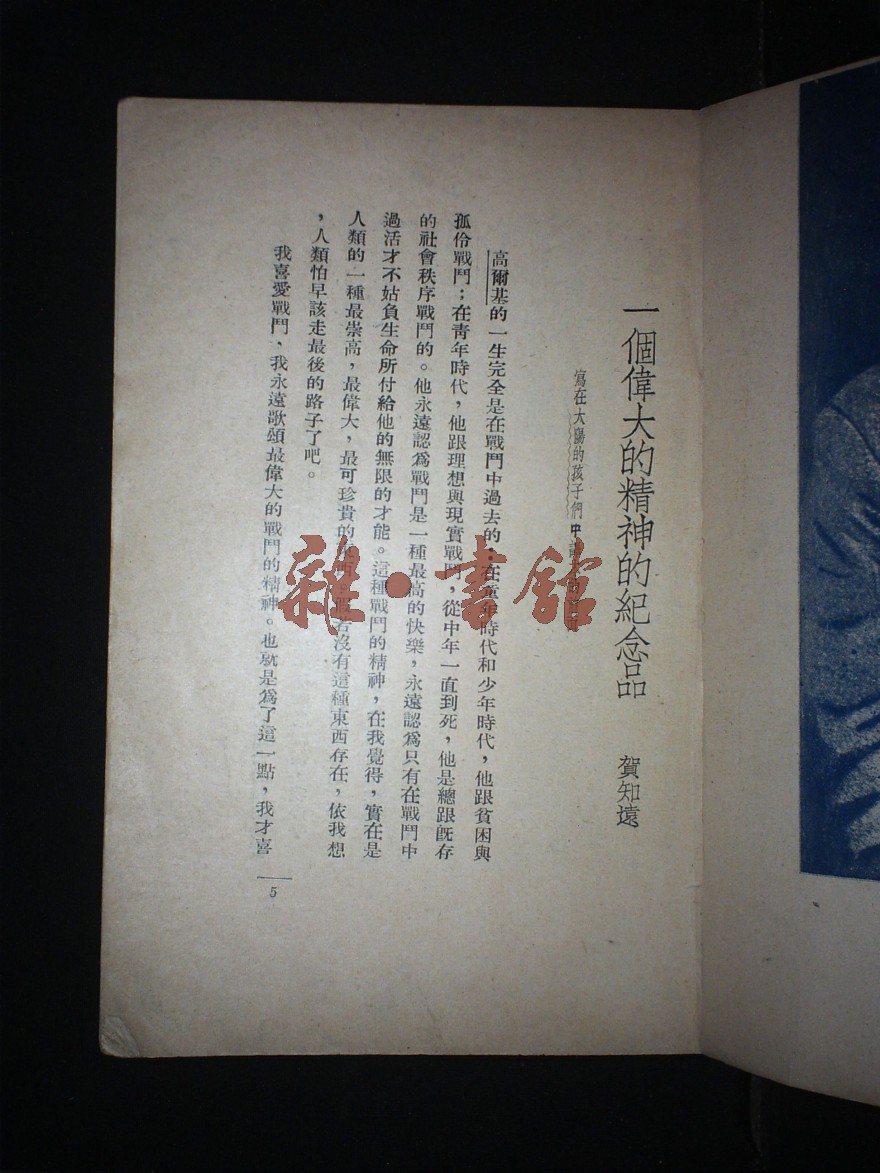 一個偉大的精神的紀念品
賀知遠
寫在太陽的孩子們中
高爾基的一生完全是在戰鬥中過去的;在童年時代和少年時代,他跟貧困與
孤伶戰鬥;在靑年時代,他跟理想與現實戰鬥,從中年一直到死,他是總跟旣存
的社會秩序戰鬥的。他永遠認爲戰鬥是一種最高的快樂,永遠認爲只有在戰鬥中
過活才不姑負生命所付給他的無限的才能。這種戰鬥的精神,在我覺得,實在是
人類的一種最崇高,最偉大,最可珍貴的東西。假若沒有這種東西存在,依我想
,人類怕早該走最後的路子了吧。
我喜愛戰鬥、我永遠歌頌最偉大的戰鬥的精神。也就是爲了這一點,我才喜
5
雜·書館